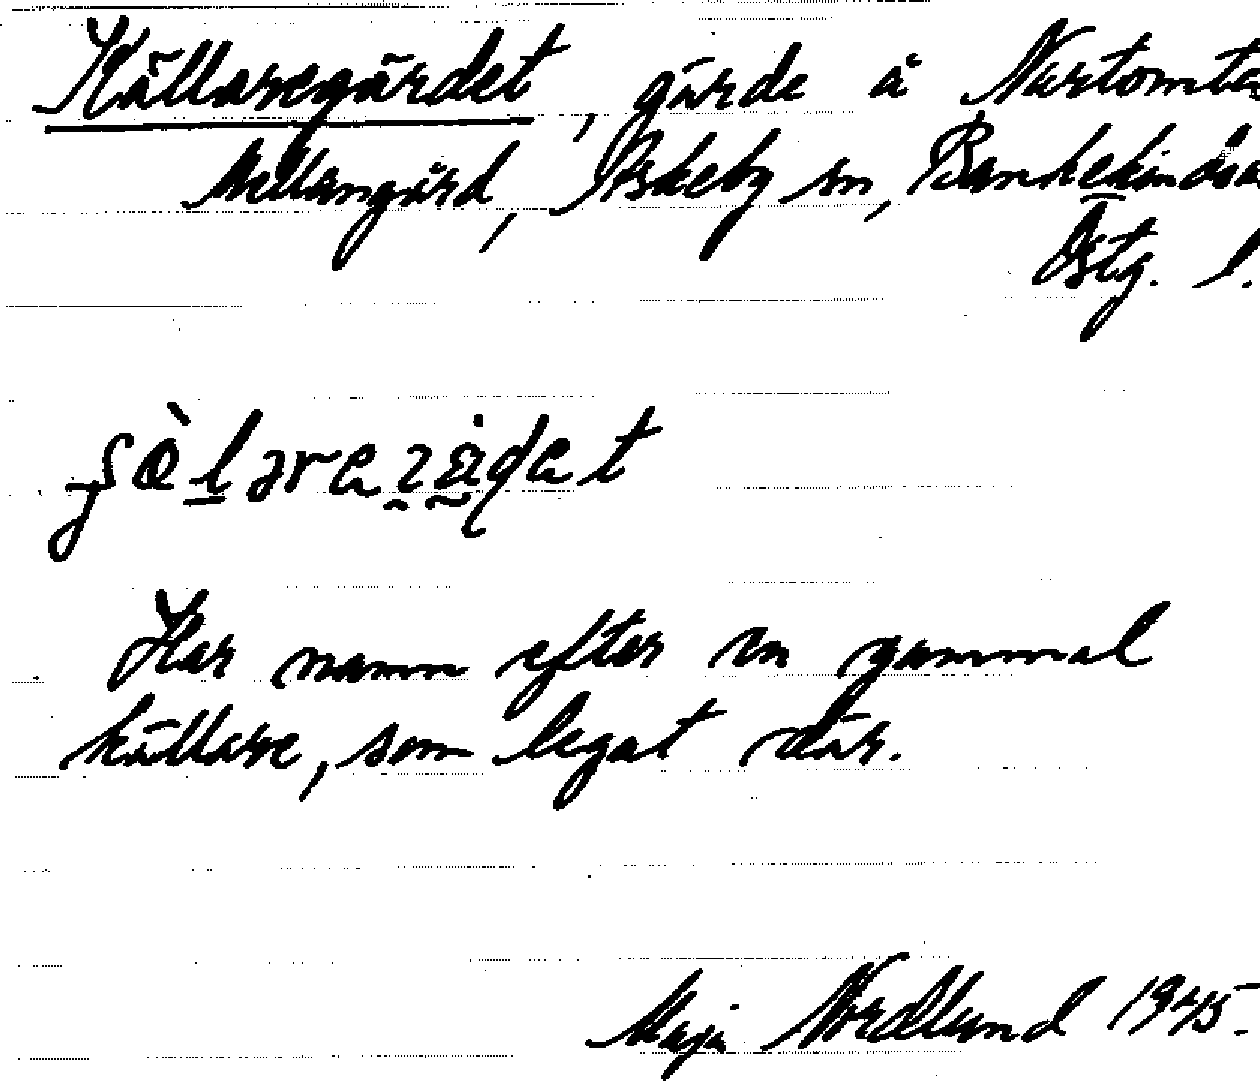 Källaregärdet, gärde å Nartomta
Mellangård, Askeby sn, Bankekinds
Östg. l.
Har namn efter en gammal
källare, som legat där.
Maja Nordlund 1945.